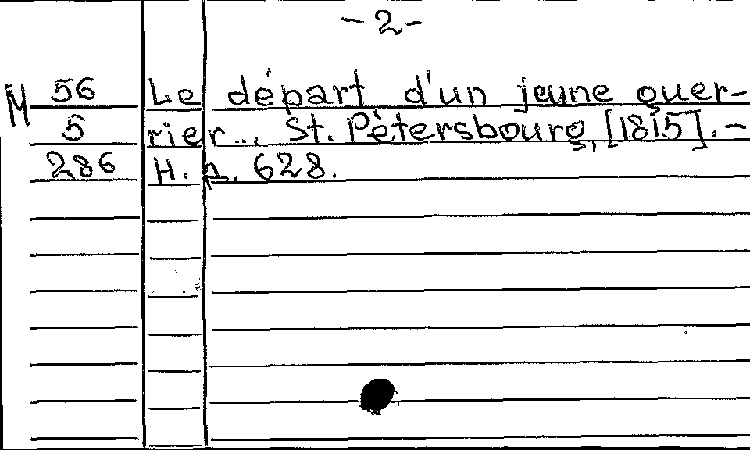 -2-
M 56 Le départ d'un jeune guer-
5 rier... St. Pétersbourg, [1815]. -
286 Н. д. 628.